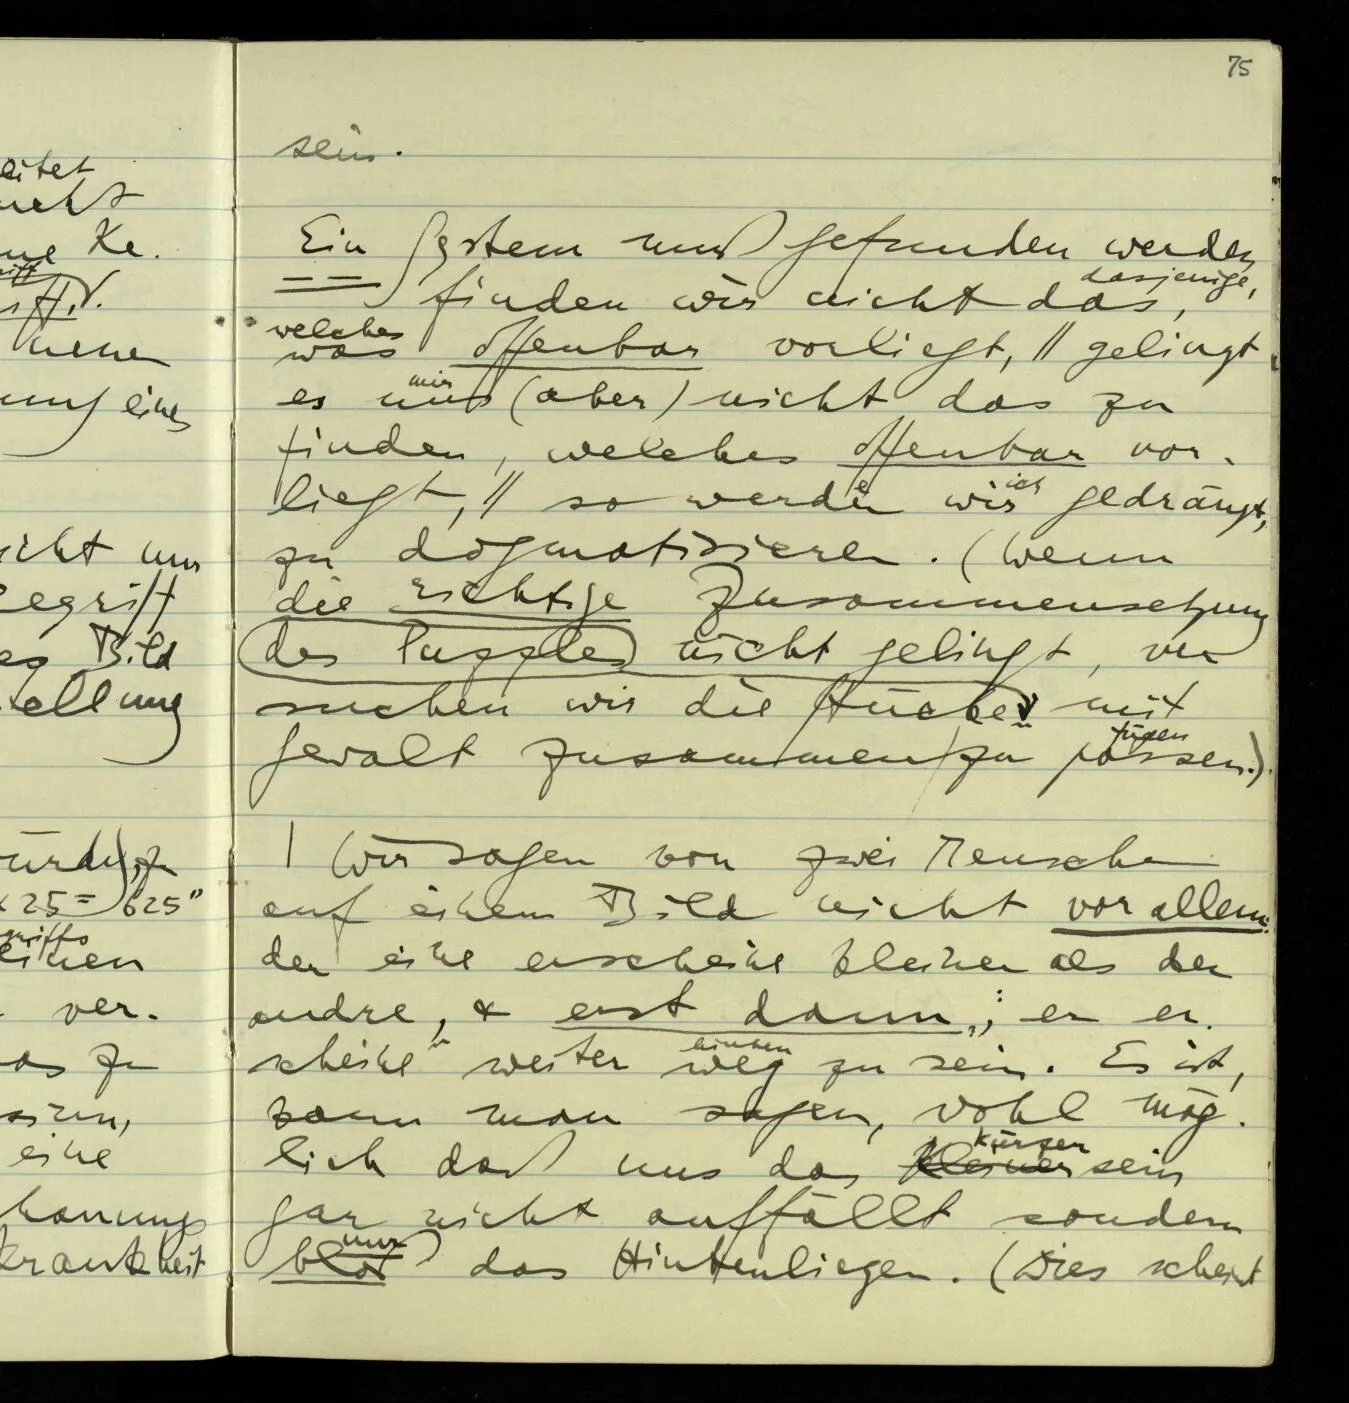 75
sein.
Ein System muß gefunden werden
dasjenige,
finden wir nicht das,
welches
was offenbar vorliegt, // gelingt
mir
es uns (aber) nicht das zu
finden, welches offenbar vor-
liegt, // so werden wir ich gedrängt,
zu dogmatisieren. (Wenn
die richtige Zusammensetzung
des Puzzles nicht gelingt, ver
suchen wir die Stücke mit
fügen
Gewalt zusammenzu passen.)
| Wir sagen von zwei Menschen
auf einem Bild nicht vor allem:
der eine erscheine kleiner als der
andre, & erst dann,; er er-
hinten
scheine weiter weg zu sein. Es ist,
kann man sagen, wohl mög-
kürzer
lich daß uns das kleiner sein
gar nicht auffällt sondern
nur
bloß das Hintenliegen. (Dies scheint
eitet
Ke.
eine
icht nur
Begriff
Bild
tellung
würde), zu
x 25 = 625"
einen
ver-
eine
krankheit